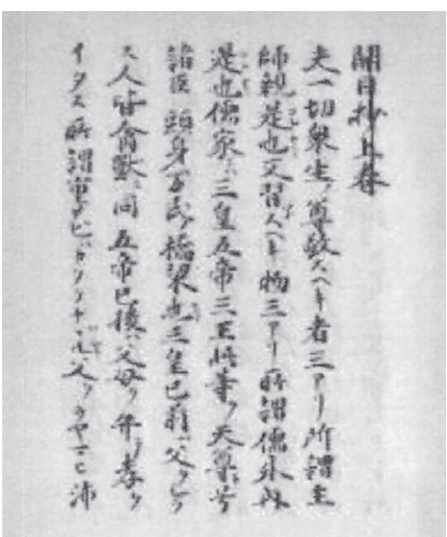 開目抄上巻
夫一切衆生ノ尊敬スヘキ者三アリ所謂主
師親是也又習スヘキ物三アリ所謂儒外内
是也儒家ニハ三皇五帝三王此等ヲ天尊ト号
諸臣ノ頭身万民ノ橋梁也三皇已前ハ父ヲシラ
ス人皆禽獣ニ同五帝已後ハ父母ヲ弁テ孝ヲ
イタス所謂重 父ヲウヤマヒ沛